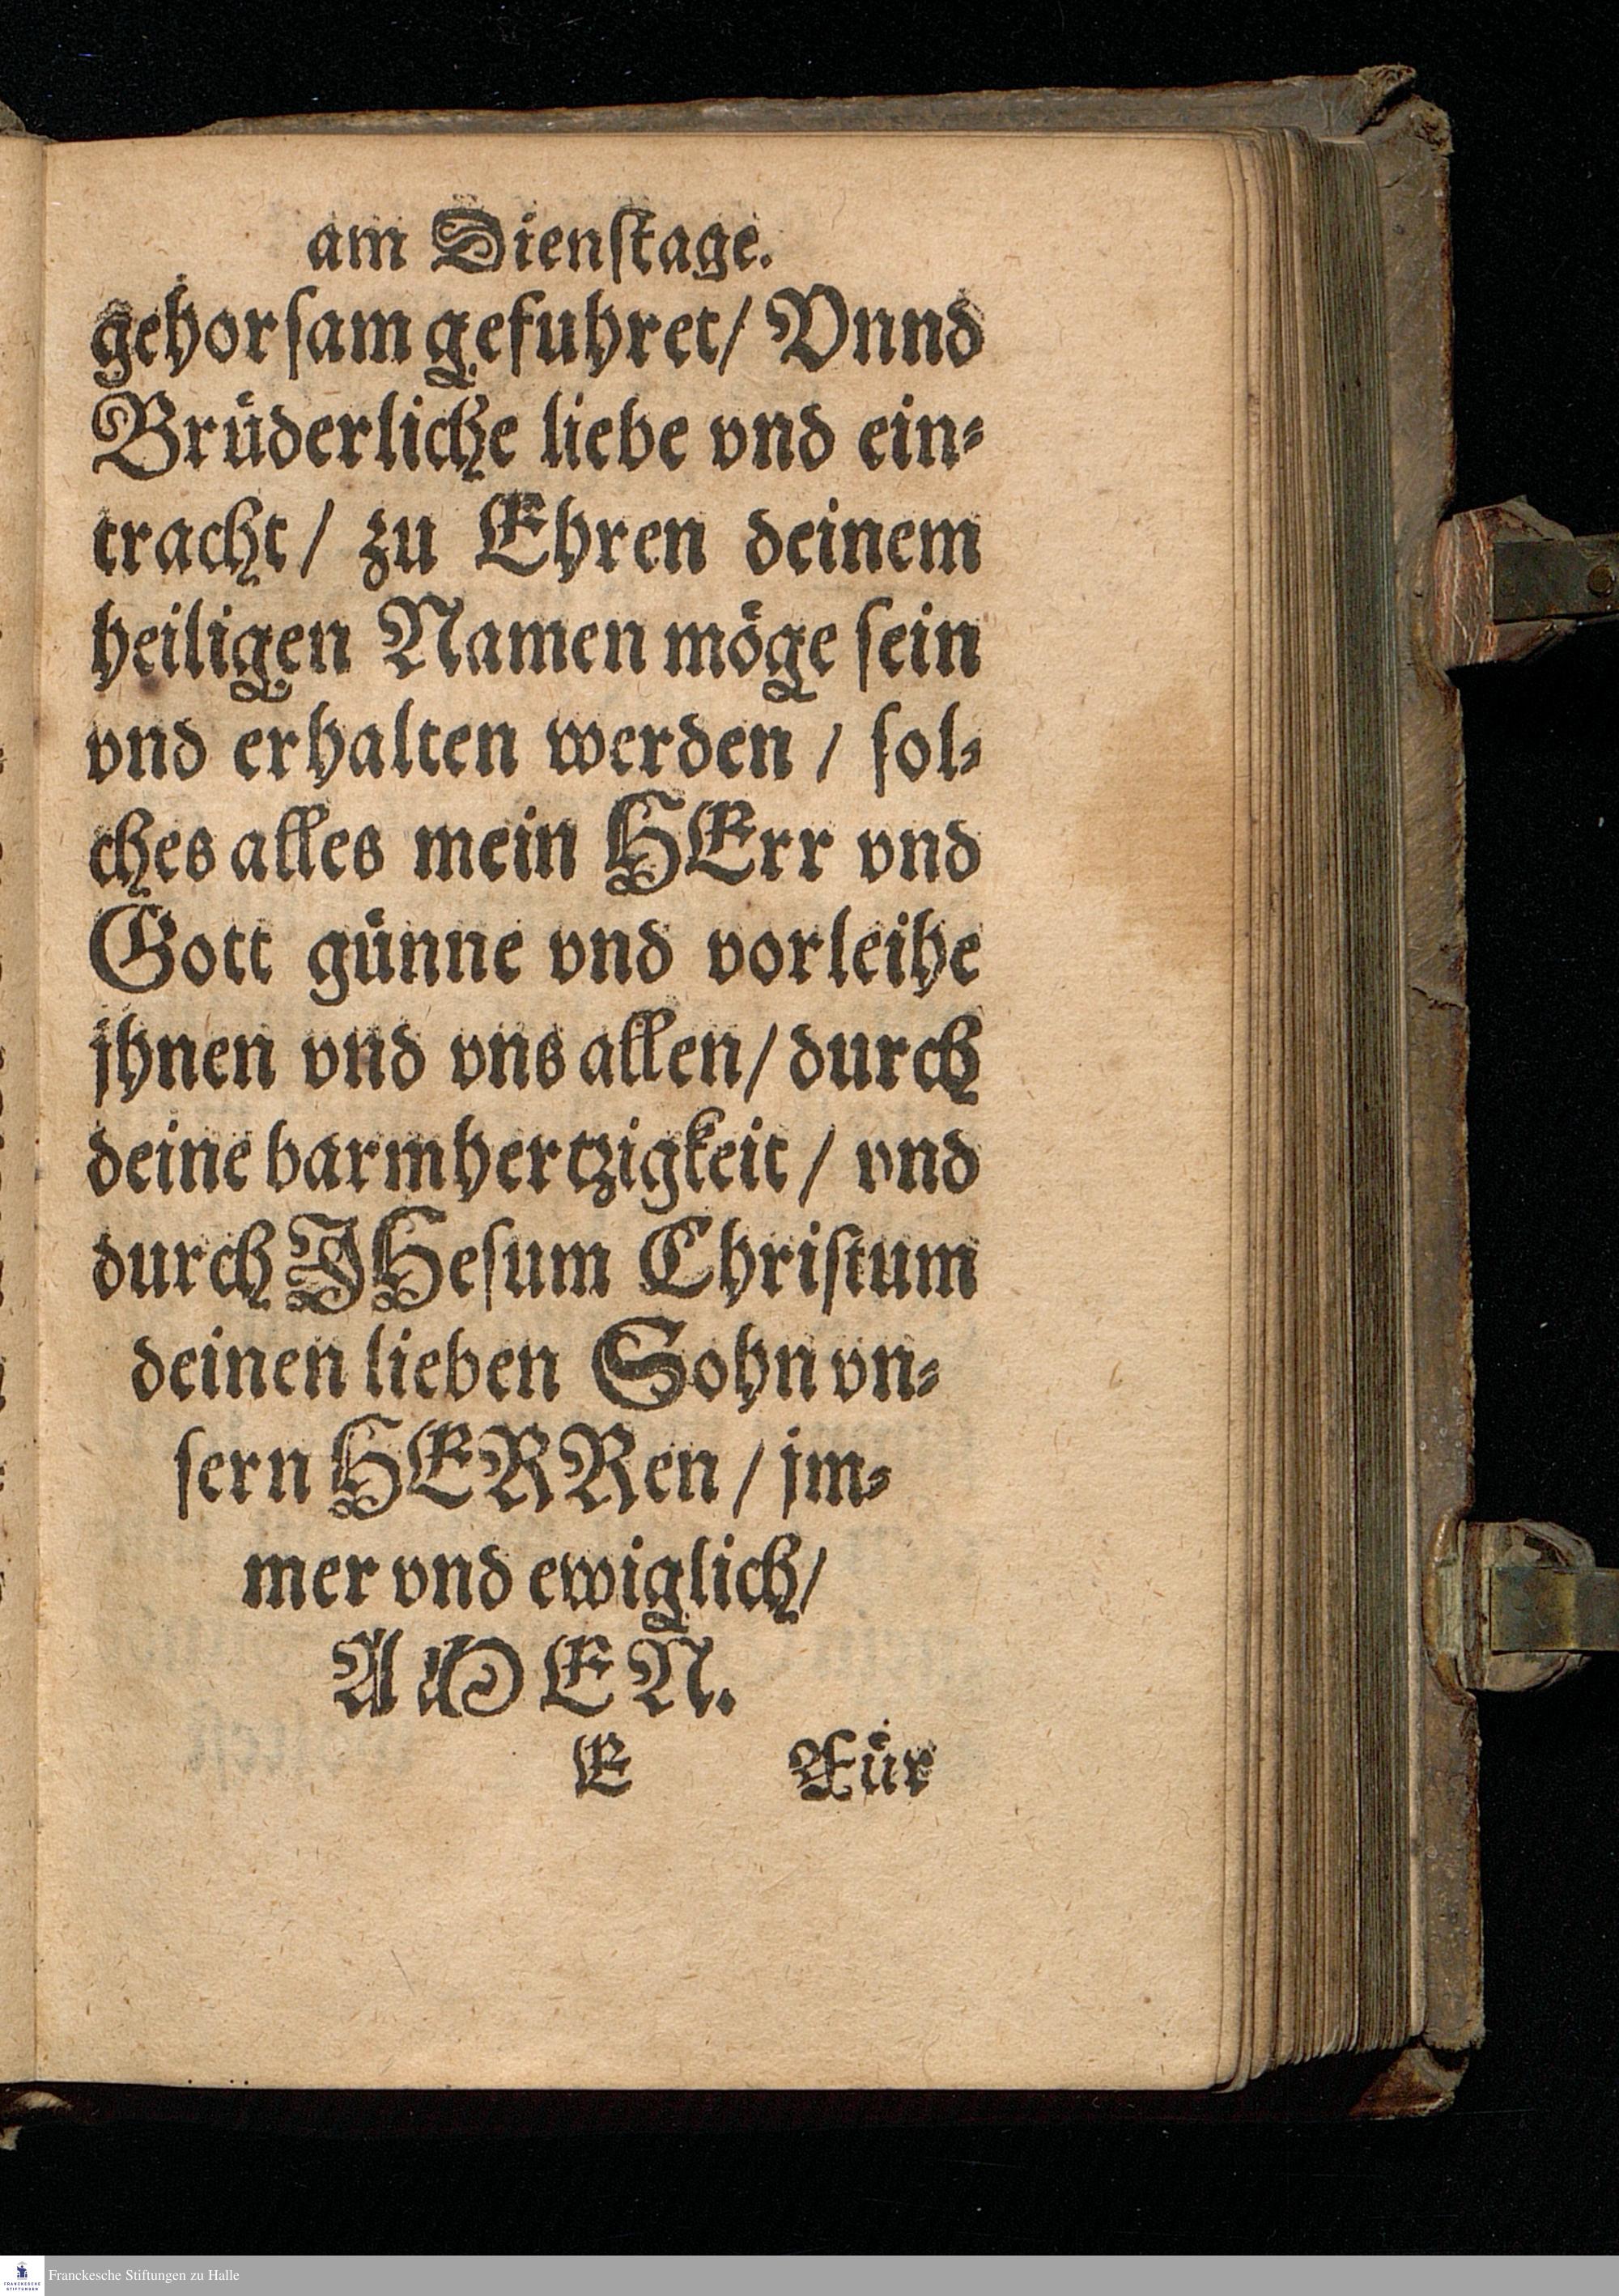 am Dienstage.
gehorsam gefuhret/ Vnnd
Brüderliche liebe vnd ein⸗
tracht/ zu Ehren deinem
heiligen Namen möge sein
vnd erhalten werden/ sol⸗
ches alles mein HErr vnd
Gott günne vnd vorleihe
jhnen vnd vns allen/ durch
deine barmhertzigkeit/ vnd
durch JHesum Christum
deinen lieben Sohn vn⸗
sern HERRen/ jm⸗
mer vnd ewiglich/
AMEN.
E Für
FRANCKESCHE
STIFTUNGEN
Franckesche Stiftungen zu Halle